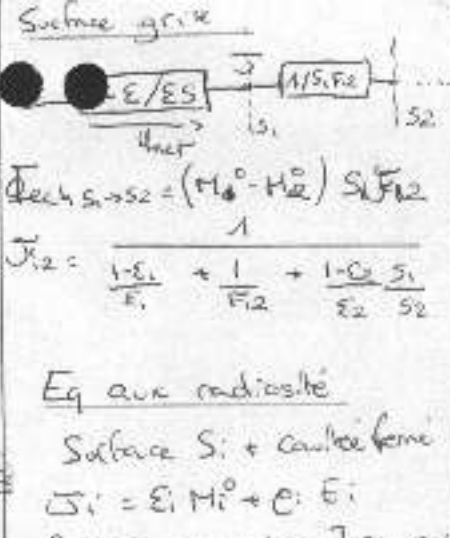 Surface grise
J
-ε/εS 1/S₁F₁₂ ....
S₁ S2
φnet
Φech S₁→S2 = (M₁° - M₂°) S₁ℱ₁₂
ℱ₁₂ = 1 / ( (1-ε₁)/ε₁ + 1/F₁₂ + (1-ε₂)/ε₂ S₁/S₂ )
Eq aux radiosité
Surface Si + cavité fermé
Ji = εi Mi° + ρi Ei